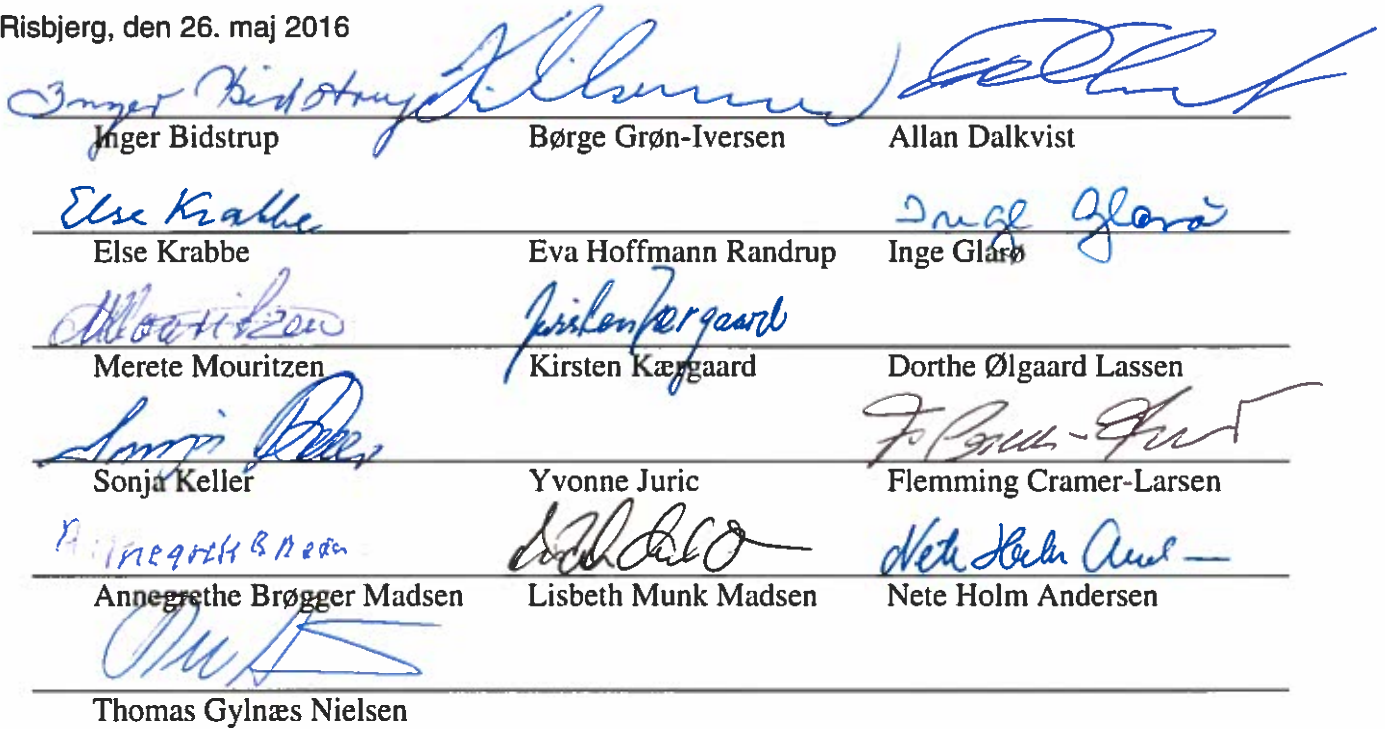 Risbjerg, den 26. maj 2016
Inger Bidstrup
Inger Bidstrup Børge Grøn-Iversen Allan Dalkvist
Else Krabbe Inge Glarø
Else Krabbe Eva Hoffmann Randrup Inge Glarø
Mouritzen Kirsten Kærgaard
Merete Mouritzen Kirsten Kærgaard Dorthe Ølgaard Lassen
Sonja
Sonja Keller Yvonne Juric Flemming Cramer-Larsen
Nete Holm
Annegrethe Brøgger Madsen Lisbeth Munk Madsen Nete Holm Andersen
Thomas Gylnæs Nielsen